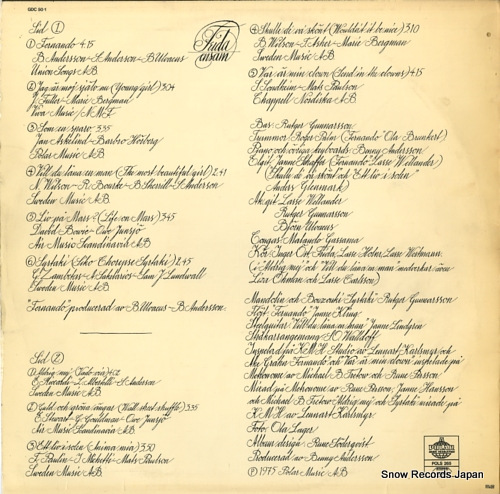 GDC 50-1
Frida
ensam
Sid 1
① Fernando 4.15
B Andersson-S Anderson-B Ulvaeus
Union Songs AB
② Jag är mej själv nu (Young girl) 3.04
J Fuller-Marie Bergman
Viva Music/NMF
③ Som en sparv 3.35
Jan Askelind-Barbro Hörberg
Polar Music AB
④ Vill du låna en man (The most beautiful girl) 2.41
N Wilson-R Bourke-B Sherrill-S Anderson
Sweden Music AB
⑤ Liv på Mars? (Life on Mars) 3.45
David Bowie-Owe Junsjö
Air Music Scandinavia AB
⑥ Syrtaki (Siko Chorepse Syrtaki) 2.45
G Zambetas-A Sakelarios-Sam J Lundwall
Sweden Music AB
"Fernando" producerad av B Ulvaeus-B Andersson
Sid 2
① Aldrig mej (Vado via)
E Riccardi-L Albertelli-S Anderson
Sweden Music AB
② Guld och gröna ängar (Wall street shuffle) 3.35
E Stewart-G Gouldman-Owe Junsjö
Air Music Scandinavia AB
③ Ett liv i solen (Anima mia) 3.50
F Paulin-I Michetti-Mats Paulson
Sweden Music AB
④ Skulle de va skönt (Wouldn't it be nice) 3.10
B Wilson-T Asher-Marie Bergman
Sweden Music AB
⑤ Var är min clown (Send in the clowns) 4.15
S Sondheim-Mats Paulson
Chappell Nordiska AB
Bas: Rutger Gunnarsson
Trummor: Roger Palm ("Fernando" Ola Brunkert)
Piano och övriga keyboards: Benny Andersson
El.git: Janne Schaffer ("Fernando" Lasse Wellander)
("Skulle de va skönt" och "Ett liv i solen"
Anders Glenmark)
Ak.git: Lasse Wellander
Rutger Gunnarsson
Björn Ulvaeus
Congas: Malando Gassama
Kör: Inger Öst, Frida, Lasse Holm, Lasse Westmann
(I "Aldrig mej" och "Vill du låna en man" medverkar även
Liza Öhman och Lasse Carlsson)
Mandolin och Bouzouki "Syrtaki": Rutger Gunnarsson
Flöjt "Fernando": Janne Kling
Steelguitar "Vill du låna en man": Janne Lindgren
Stråkarrangemang: SO Walldoff
Inspelad på KMH Studio av Lennart Karlsmyr och
Åke Grahn. "Fernando" och "Var är min clown" inspelade på
Metronome av Michael B Tretow och Rune Persson
Mixad på Metronome av Rune Persson, Janne Hansson
och Michael B Tretow. "Aldrig mej" och "Syrtaki" mixade på
KMH av Lennart Karlsmyr
Foto: Ola Lager
Album design: Rune Söderqvist
Producerad av Benny Andersson
Ⓟ 1975 Polar Music AB
POLS 265
Snow Records Japan